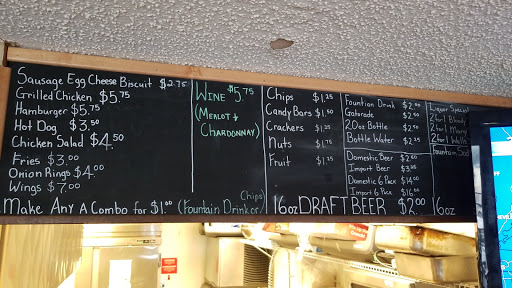 Sausage Egg Cheese Biscuit $2.75
Grilled Chicken $5.75
Hamburger $5.75
Hot Dog $3.50
Chicken Salad $4.50
Fries $3.00
Onion Rings $4.00
Wings $7.00
Wine $5.75
(Merlot &
Chardonnay)
Chips $1.25
Candy Bars $1.50
Crackers $1.25
Nuts $1.75
Fruit $1.25
Fountion Drink $2.00
Gatorade $2.50
20oz Bottle $2.50
Bottle Water $2.25
Domestic Beer $2.60
Import Beer $3.25
Domestic 6 Pack $14.00
Import 6 Pack $16.00
Liquor Special
2 for 1 Bloody
2 for 1 Mary
2 for 1 Wells
Fountain
Make Any A Combo for $1.00 (Fountain Drink or Chips)
16oz DRAFT BEER $2.00 16oz